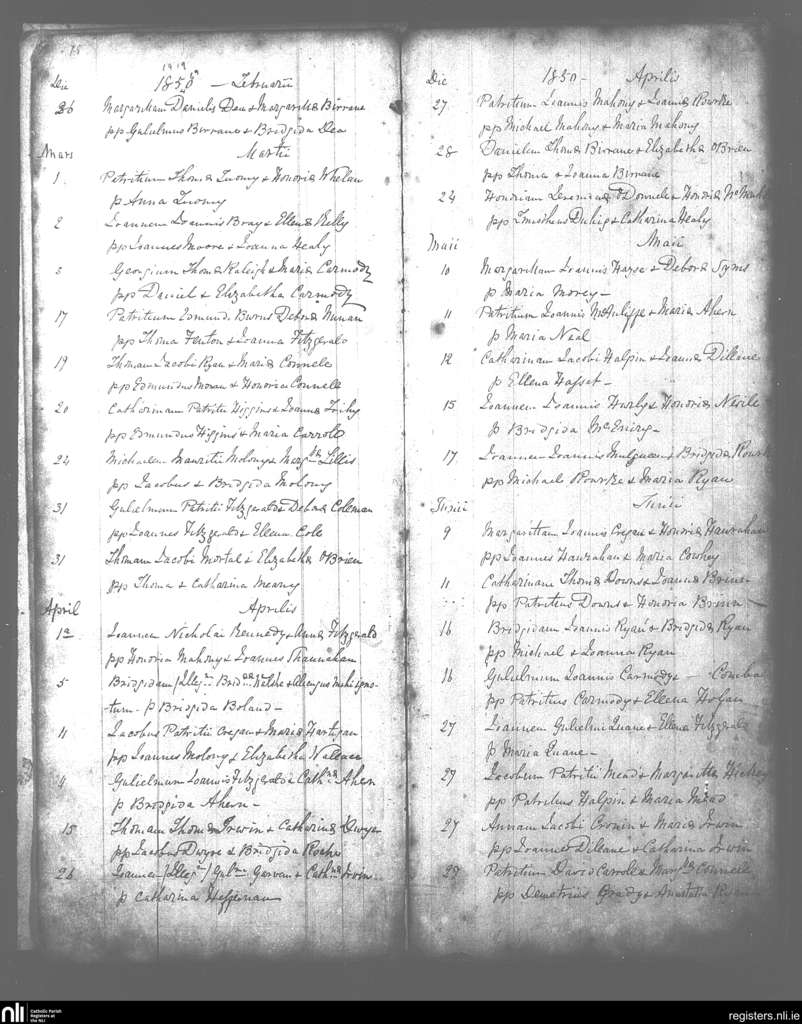 Die 1850 - Februarii
26 Margaritam Danielis Dea & Margaritæ Birrane
pp Gulielmus Birrane & Bridgida Dea
Mars Martii
1 Patritium Thomæ Twomy & Honoriæ Whelan
p Anna Twomy
2 Joannem Joannis Bray & Ellenæ Kelly
pp Joannes Moore & Joanna Healy
Georgium Thomæ Raleigh & Mariæ Carmody
pp Daniel & Elizabetha Carmody
17 Patritium Edmund. Burns Deboræ Nunan
pp Thoma Fenton & Joanna Fitzgerald
19 Thomam Jacobi Ryan & Mariæ Connele
pp Edmundus Moran & Honoria Connell
20 Catharinam Patritii Higgins & Joannæ
pp Edmundus Higgins & Maria Carroll
24 Michaelem Mauritii Molony & Margtæ Lillis
pp Jacobus & Bridgida Molony
31 Gulielmum Patritii Fitzgerald & Deboræ Coleman
pp Joannes Fitzgerald & Ellena Cole
31 Thomam Jacobi Mortal & Elizabethæ O'Brien
pp Thoma & Catharina Meany
April Aprilis
1a Joannem Nicholai Kennedy & Annæ Fitzgerald
pp Honoria Mahony & Joannes Shaunahan
5 Bridgidam (Illeg.) Bridæ Walshe & alicujus mihi igno-
-tum - p Bridgida Boland -
11 Jacobus Patritii Cregan & Mariæ Hartigan
pp Joannes Molony & Elizabetha Wallace
Gulielmum Joannis Fitzgerald & Cathnæ Ahern
p Bridgida Ahern -
15 Thomam Thomæ Irwin & Catharinæ Dwyer
pp Jacobus Dwyre & Bridgida Roche
26 Joannem (Illeg.) Garvan & Cathnæ Irwin
p Catharina Heffernan
Die 1850 - Aprilis
27 Patritium Joannis Mahony & Joannæ Rourke
pp Michael Mahony & Maria Mahony
28 Danielem Thomæ Birrane & Elizabethæ O'Brien
pp Thoma & Joanna Birrane
24 Honoriam Jeremiæ O'Donnele & Honoriæ
pp Timotheus Duhig & Catharina Healy
Maii Maii
10 Margaritam Joannis Hayse & Deboræ Syms
p Maria Morey -
11 Patritium Joannis McAuliffe & Mariæ Ahern
p Maria Neal
12 Catharinam Jacobi Halpin & Joannæ Dillane
p Ellena Hasset -
15 Joannem Joannis Hurly & Honoriæ Nevile
p Bridgida McEniry -
17 Joannem Joannis Mulqueen & Bridgidæ
pp Michael O'Rourke & Maria Ryan
Junii Junii
9 Margarittam Joannis Cregan & Honoriæ Hanrahan
pp Joannes Hanrahan & Maria Cowhey
11 Catharinam Thomæ Downs & Joannæ Brinn
pp Patritius Downs & Honoria Brinn
16 Bridgidam Joannis Ryan & Bridgidæ Ryan
pp Michael & Joanna Ryan
16 Gulielmum Joannis Carmody &
pp Patritius Carmody & Ellena Hogan
27 Joannem Gulielmi Quane & Ellenæ Fitzgerald
p Maria Quane -
27 Jacobum Patritii Mead & Margarittæ Hickey
pp Patritius Halpin & Maria Mead
27 Annam Jacobi Cronin & Mariæ Irwin
pp Joannes Dillane & Catharina Irwin
28 Patritium David Carroll & Margtæ Connell
pp Demetrius Grady & Anastatia
nli
Catholic Parish
Registers at
the NLI
registers.nli.ie